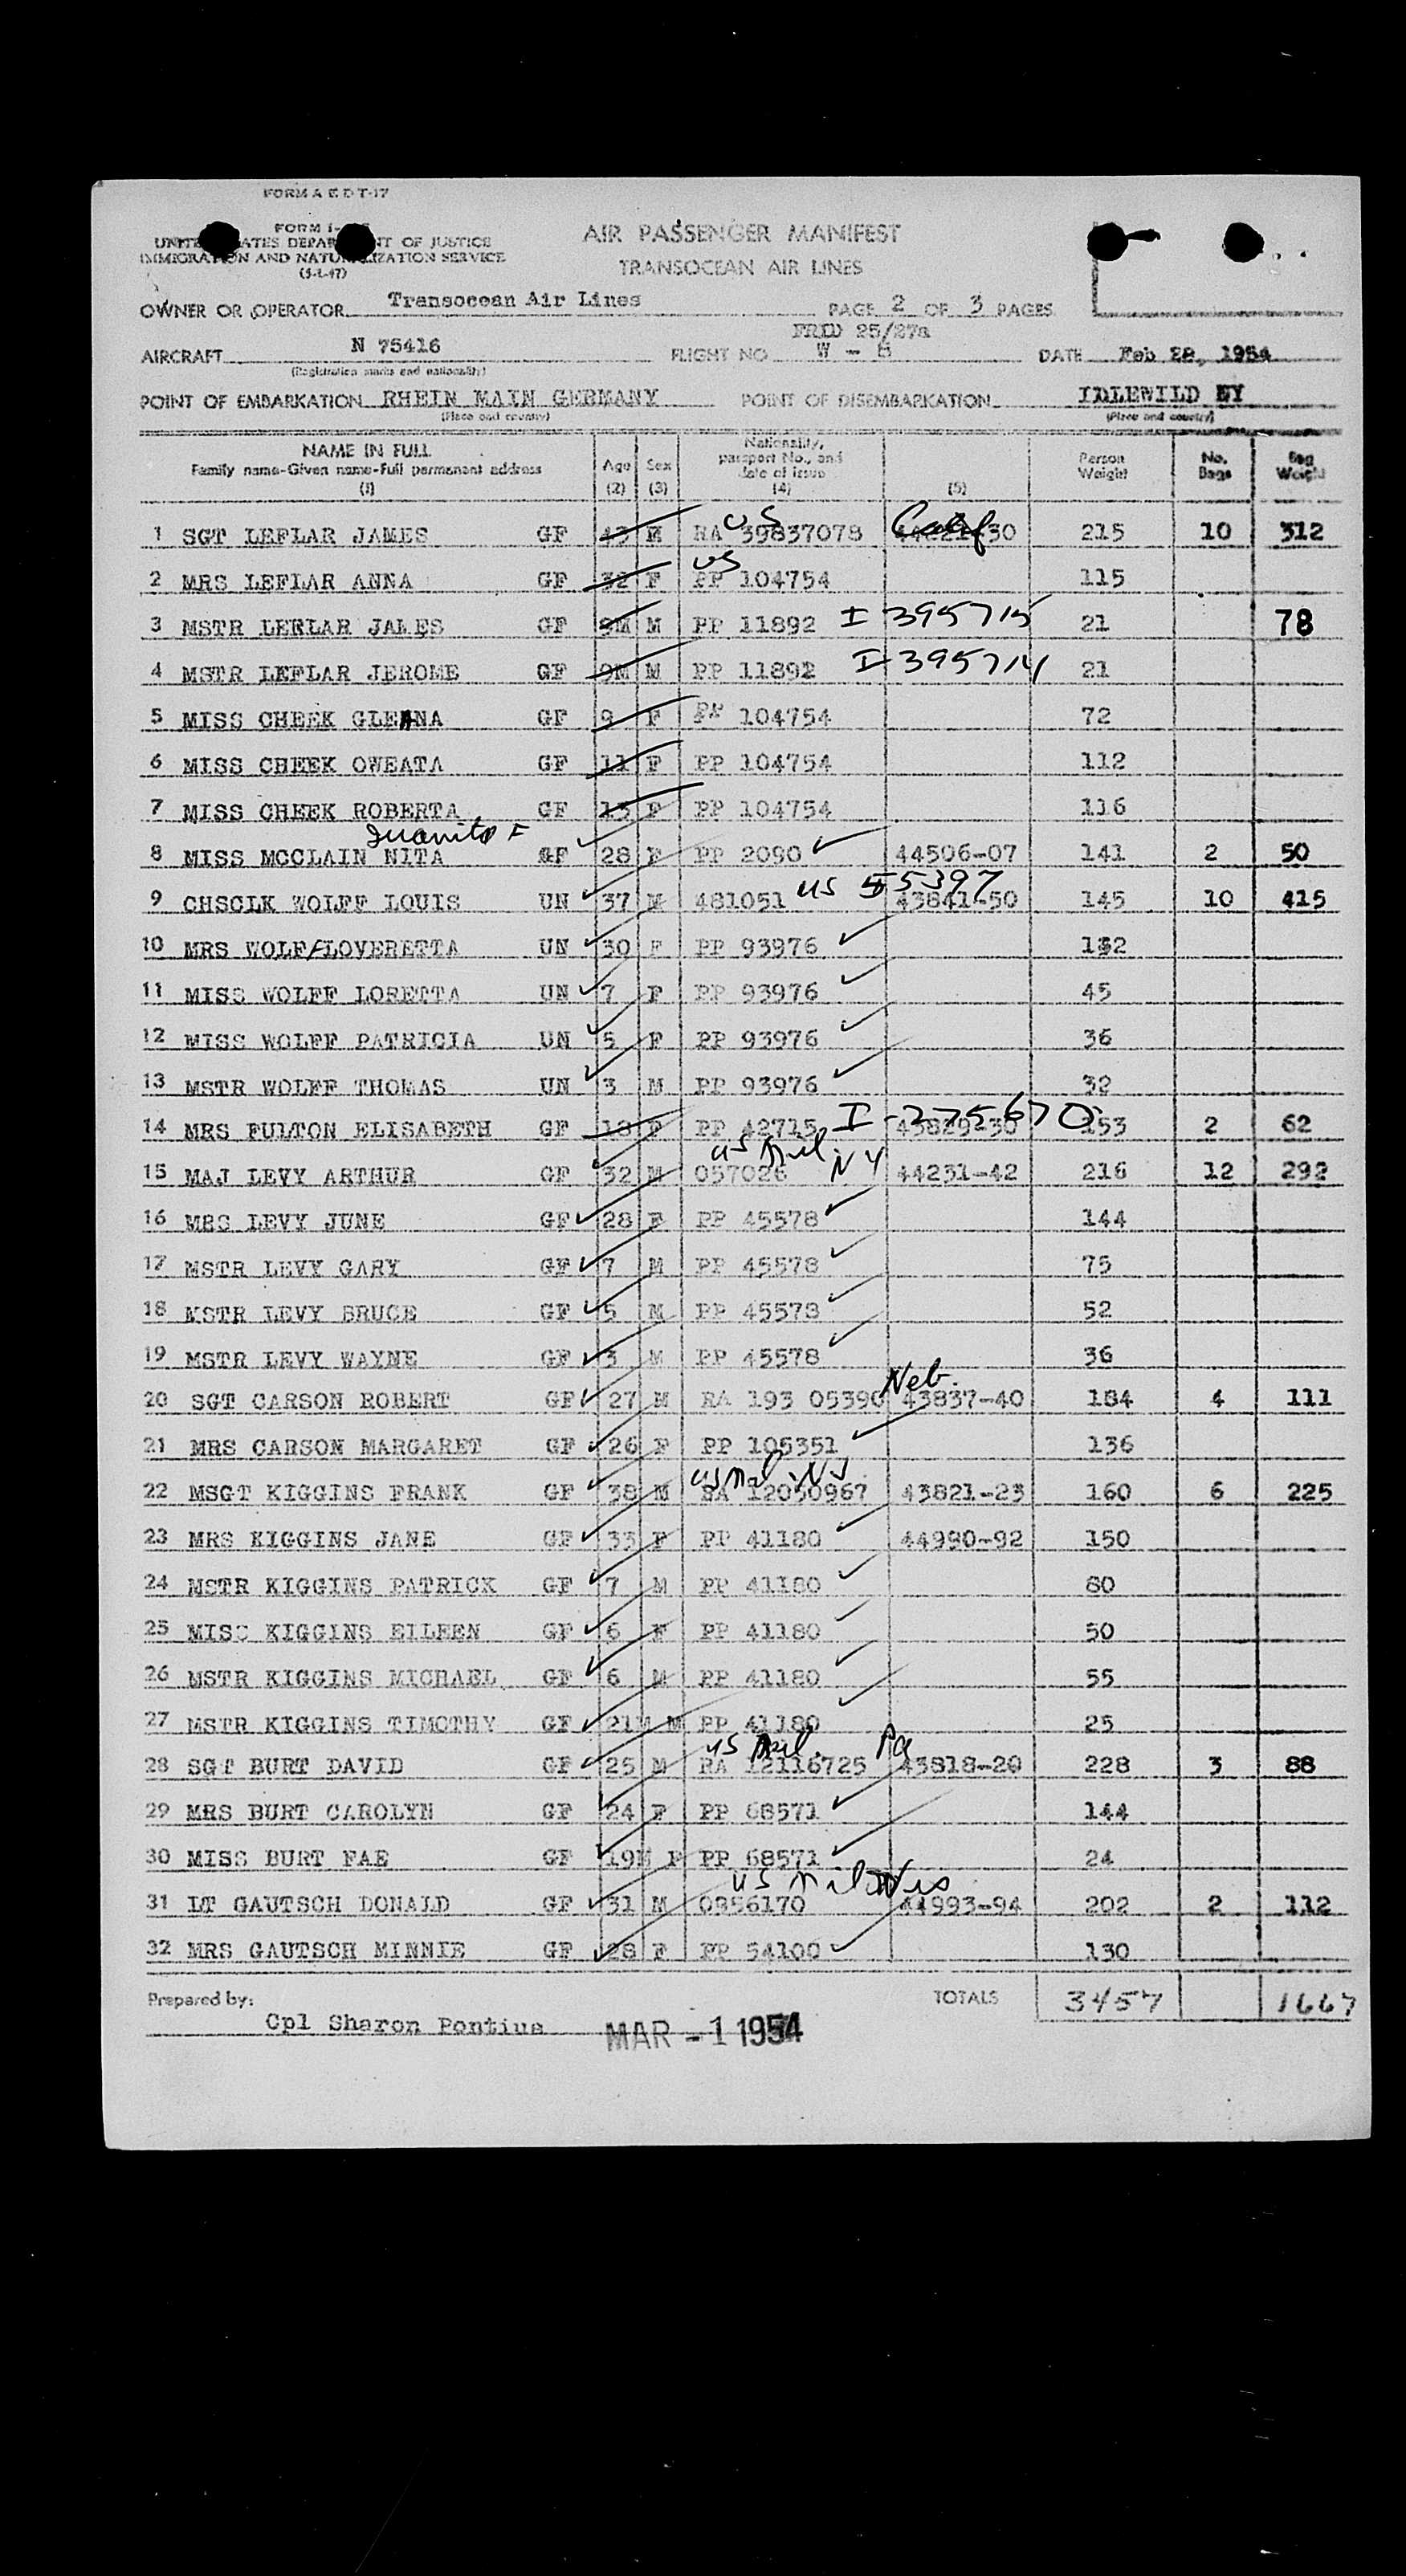 FORM A E D T-17
FORM I-
UNITED STATES DEPARTMENT OF JUSTICE
IMMIGRATION AND NATURALIZATION SERVICE
(5-1-47)
AIR PASSENGER MANIFEST
TRANSOCEAN AIR LINES
OWNER OR OPERATOR Transocean Air Lines PAGE 2 OF 3 PAGES
FRID 25/27a
AIRCRAFT N 75416 FLIGHT NO W - 5 DATE Feb 28, 1954
(Registration marks and nationality)
POINT OF EMBARKATION RHEIN MAIN GERMANY POINT OF DISEMBARKATION IDLEWILD NY
(Place and country) (Place and country)
NAME IN FULL Family name-Given name-Full permanent address (1) Age (2) Sex (3) Nationality, passport No., and date of issue (4) (5) Person Weight No. Bags Bag Weight
1 SGT LEFLAR JAMES GF 43 M RA 39837078 US Calif 215 10 312
2 MRS LEFLAR ANNA GF 32 F US PP 104754 115
3 MSTR LEFLAR JAMES GF 9M M PP 11892 I 395715 21 78
4 MSTR LEFLAR JEROME GF 9M M PP 11892 I-395714 21
5 MISS CHEEK GLENNA GF 9 F PP 104754 72
6 MISS CHEEK OWEATA GF 11 F PP 104754 112
7 MISS CHEEK ROBERTA GF 13 F PP 104754 116
Juanita F
8 MISS MCCLAIN NITA GF 28 F PP 2090 44506-07 141 2 50
9 CHSCLK WOLFF LOUIS UN 37 M 481051 US 55397 43841-50 145 10 415
10 MRS WOLF/LOVERETTA UN 30 F PP 93976 132
11 MISS WOLFF LORETTA UN 7 F PP 93976 45
12 MISS WOLFF PATRICIA UN 5 F PP 93976 36
13 MSTR WOLFF THOMAS UN 3 M PP 93976 32
14 MRS FULTON ELISABETH GF 18 F PP 42715 I-275670 43829-30 153 2 62
15 MAJ LEVY ARTHUR GF 32 M 057026 US Mil NY 44231-42 216 12 292
16 MRS LEVY JUNE GF 28 F PP 45578 144
17 MSTR LEVY GARY GF 7 M PP 45578 75
18 MSTR LEVY BRUCE GF 5 M PP 45578 52
19 MSTR LEVY WAYNE GF 3 M PP 45578 36
20 SGT CARSON ROBERT GF 27 M RA 193 05390 Neb. 43837-40 184 4 111
21 MRS CARSON MARGARET GF 26 F PP 105351 136
22 MSGT KIGGINS FRANK GF 38 M RA 12050967 US Mil NJ 43821-23 160 6 225
23 MRS KIGGINS JANE GF 33 F PP 41180 44990-92 150
24 MSTR KIGGINS PATRICK GF 7 M PP 41180 80
25 MISS KIGGINS EILEEN GF 6 F PP 41180 50
26 MSTR KIGGINS MICHAEL GF 6 M PP 41180 55
27 MSTR KIGGINS TIMOTHY GF 21M M PP 41180 25
28 SGT BURT DAVID GF 25 M RA 12116725 US Mil. Pa 43818-20 228 3 88
29 MRS BURT CAROLYN GF 24 F PP 68571 144
30 MISS BURT FAE GF 19M F PP 68571 24
31 LT GAUTSCH DONALD GF 31 M 0856170 US Mil Wis 44993-94 202 2 112
32 MRS GAUTSCH MINNIE GF 28 F PP 54100 130
Prepared by: TOTALS 3457 1667
Cpl Sharon Pontius MAR -1 1954